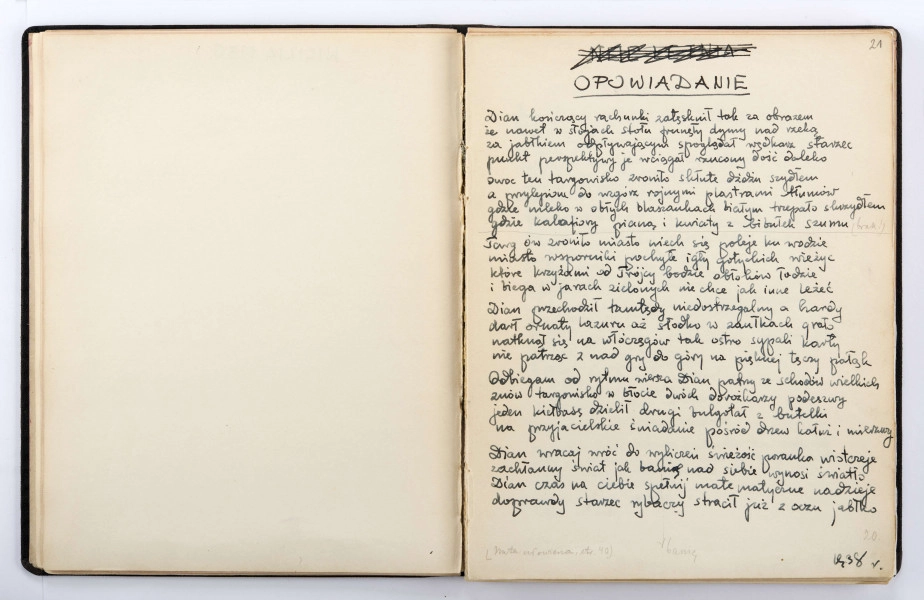 21
OPOWIADANIE
Dian kończący rachunki zatęsknił tak za obrazem
że nawet w słojach stołu frunęły dymy nad rzeką
za jabłkiem odpływającym spoglądał wędkarz starzec
punkt perspektywy je wciągał rzucony dość daleko
owoc ten targowisko zroniło skłute dżdżu szydłem
a przylepione do wzgórz rojnymi plastrami tłumów
gdzie mleko w obłych blaszankach białym trzepało skrzydłem
gdzie kalafiory pianą i kwiaty z bibułek szumu
Targ ów zroniło miasto niech się poleje ku wodzie
miasto wsporniki pochyłe igły gotyckich wieżyc
które krzyżami od Trójcy bodzie obłoków łodzie
i biega w jarach zielonych nie chce jak inne leżeć
Dian przechodził tamtędy niedostrzegalny a hardy
darł ornaty lazuru aż słodko w zaułkach grało
natknął się na włóczęgów tak ostro sypali karty
nie patrząc z nad gry do góry na pięknej tęczy pałąk
Odbiegam od rytmu wiersza Dian patrzy ze schodów wielkich
znów targowisko w błocie dwóch dorożkarzy podeszwy
jeden kiełbasę dzielił drugi bulgotał z butelki
na przyjacielskie śniadanie pośród drzew kałuż i
Dian wracaj wróć do wyliczeń świeżość poranka wietrzeje
zachłanny świat jak banię nad siebie wynosi światło
Dian czas na ciebie spełnij matematyczne nadzieje
doprawdy starzec rybaczy stracił już z oczu jabłko
20
banię
1938 r.